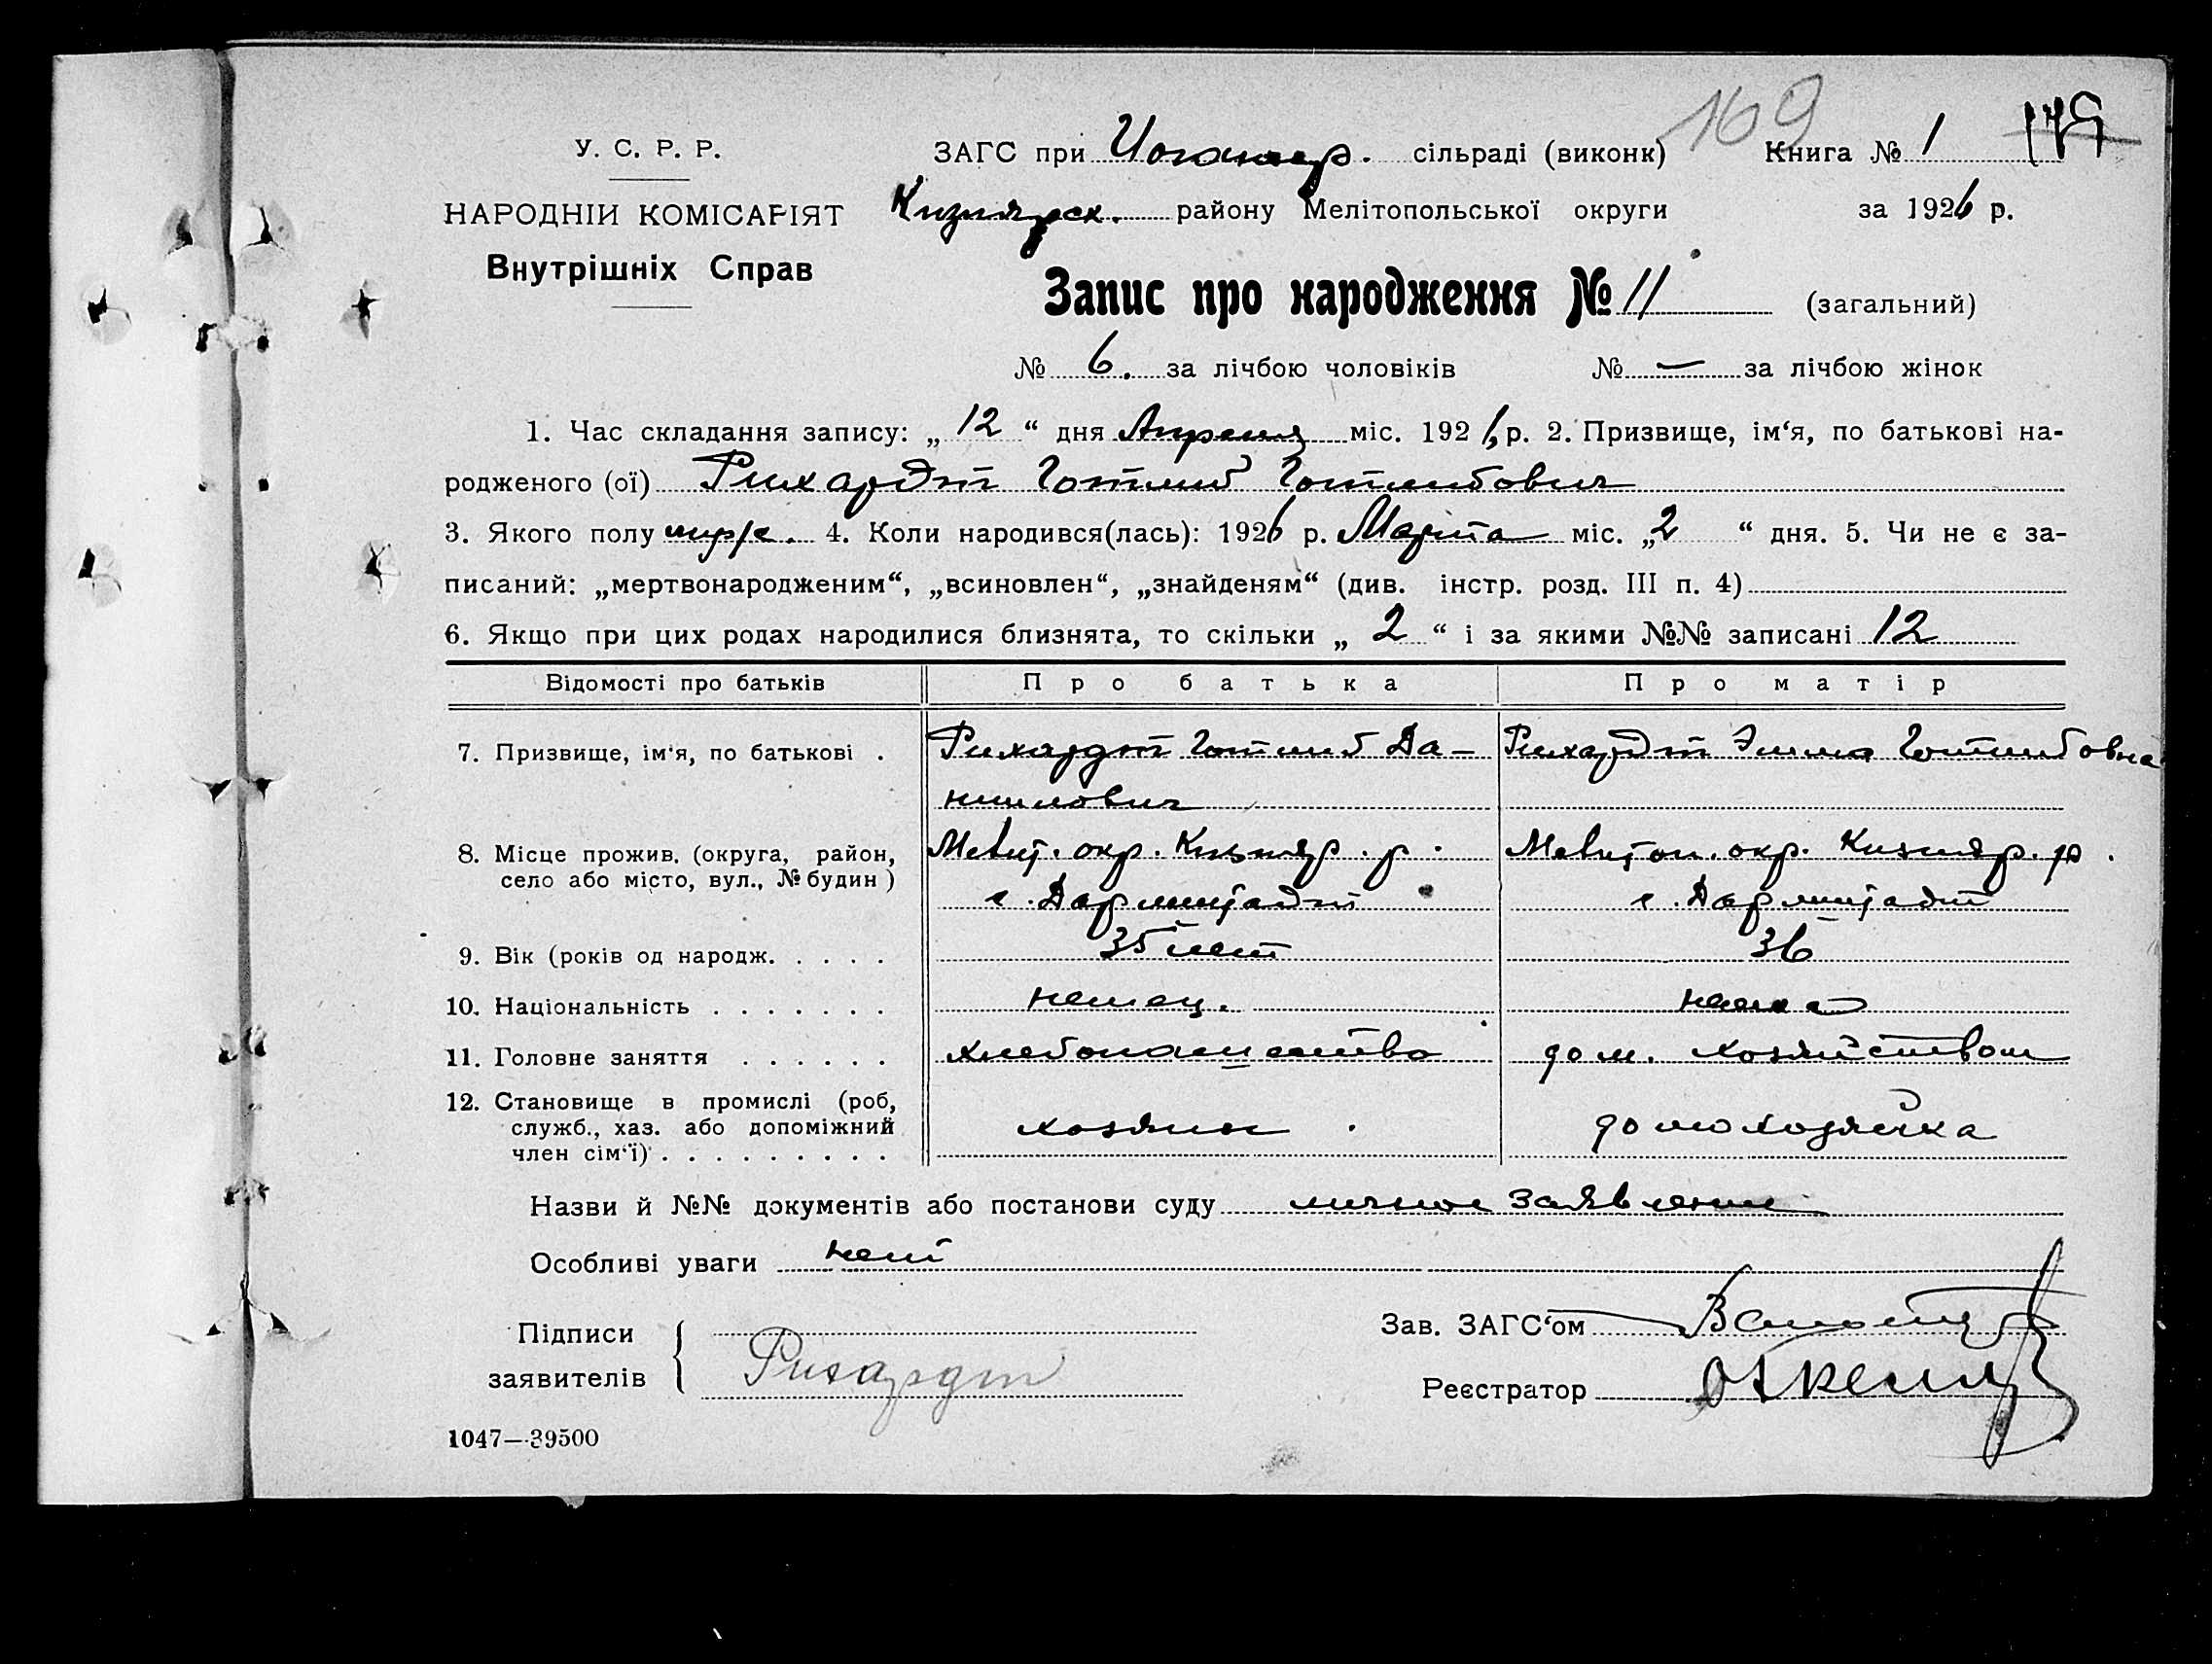 169
У. С. Р. Р.
ЗАГС при сільраді (виконк) Книга № 1
НАРОДНІЙ КОМІСАРІЯТ
Кизиярск. району Мелітопольської округи за 1926 р.
Внутрішніх Справ
Запис про народження № 11 (загальний)
№ 6. за лічбою чоловіків № — за лічбою жінок
1. Час складання запису: „ 12 “ дня Апреля міс. 1926 р. 2. Призвище, ім‘я, по батькові на-
родженого (ої) Рихардт Готлиб Готлибович
3. Якого полу муж. 4. Коли народився(лась): 1926 р. Марта міс. „2 “ дня. 5. Чи не є за-
писаний: „мертвонародженим“, „всиновлен“, „знайденям“ (див. інстр. розд. III п. 4)
6. Якщо при цих родах народилися близнята, то скільки „ 2 “ і за якими №№ записані 12
Відомості про батьків Про батька Про матір
7. Призвище, ім‘я, по батькові . Рихардт Готлиб Да- Рихардт Эмма Готлибовна
ниилович
8. Місце прожив. (округа, район, Мелит. окр. Кизияр. р. Мелитоп. окр. Кизияр. р.
село або місто, вул., № будин ) с. Дармштадт с. Дармштадт
9. Вік (років од народж. . . . . 35 лет 36
10. Національність . . . . . . . немец. немка
11. Головне заняття . . . . . . хлебопашество дом. хозяйством
12. Становище в промислі (роб,
служб., хаз. або допоміжний хозяин. домохозяйка
член сім‘ї) . . . . . . . . .
Назви й №№ документів або постанови суду личное заявление
Особливі уваги нет
Підписи Зав. ЗАГС‘ом
заявителів Рихардт Реєстратор
1047—39500